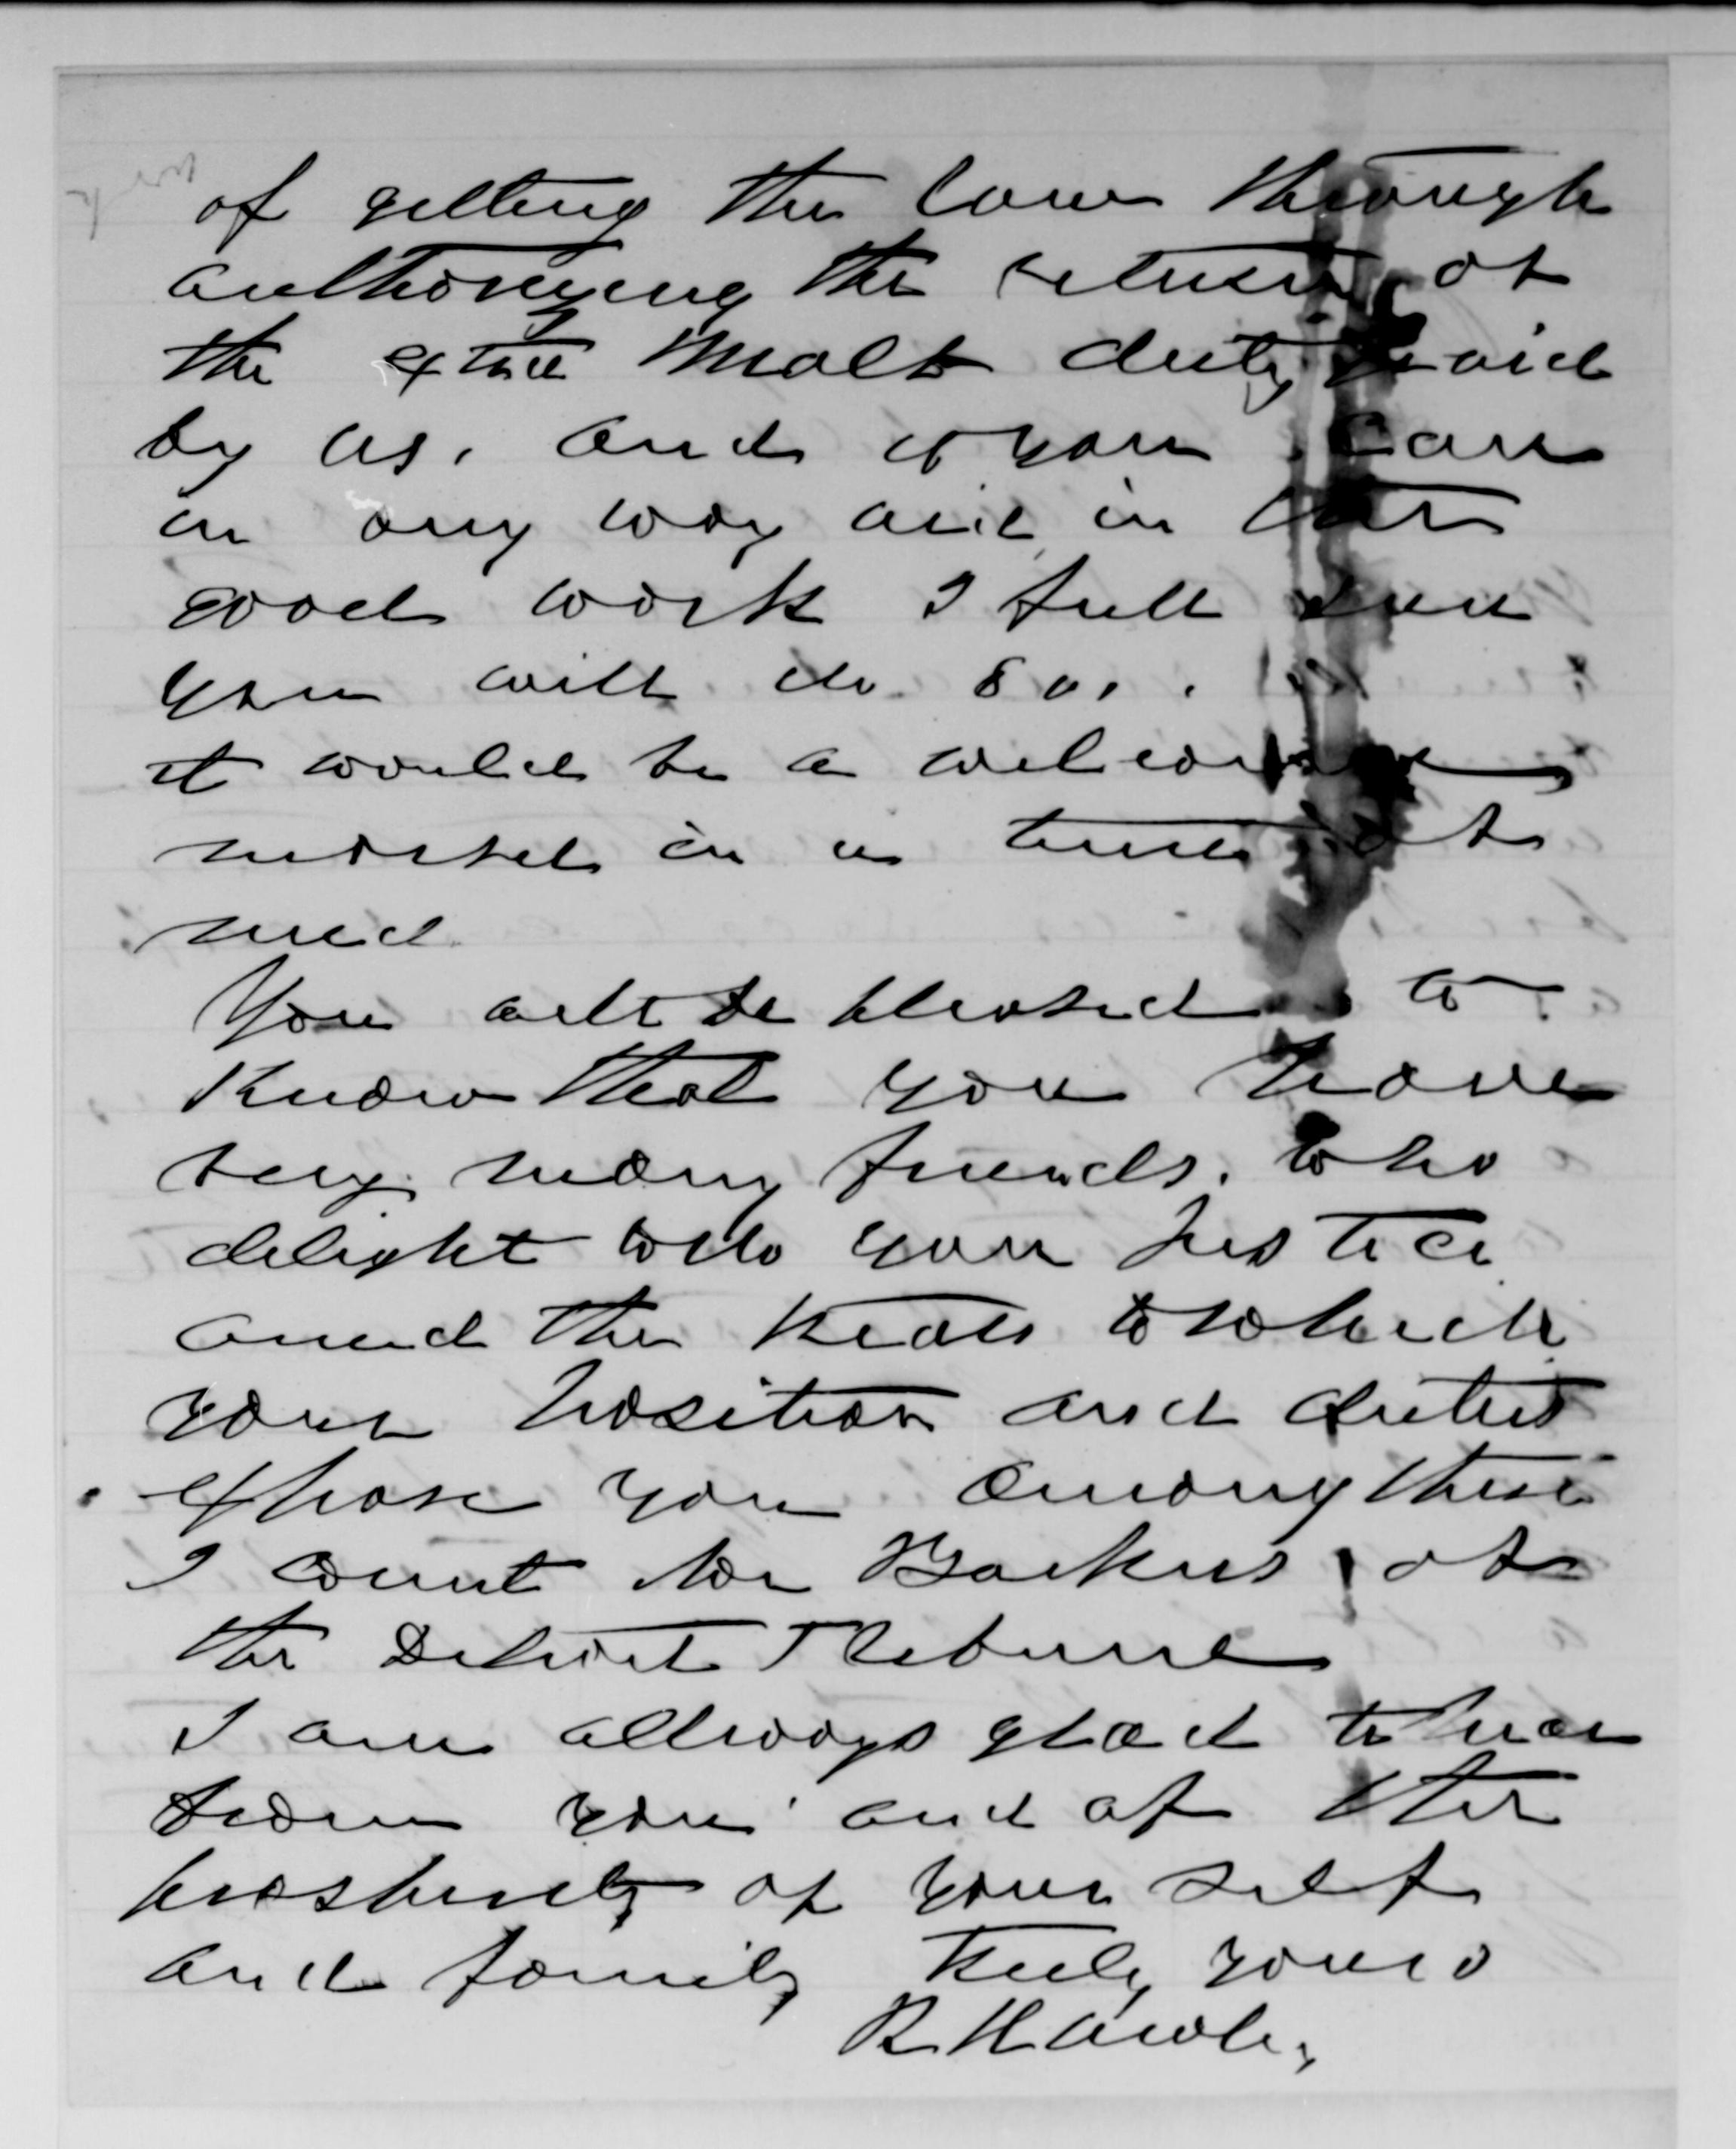 of getting the law through
authorizing the return of
the extra Malt duty paid
by us, and if you can
in any way aid in this
good work I feel sure
you will do so.
it would be a welcome
morsel in a time of
need
You will be pleased to
Know that you have
very many friends. who
delight to do you Justice
amid the trials to which
your position and duties
expose you among these
I count Mr Backus of
the Detroit Tribune
I am allways glad to hear
from you and of the
prosperity of your self
and family Truly yours
R Hawley